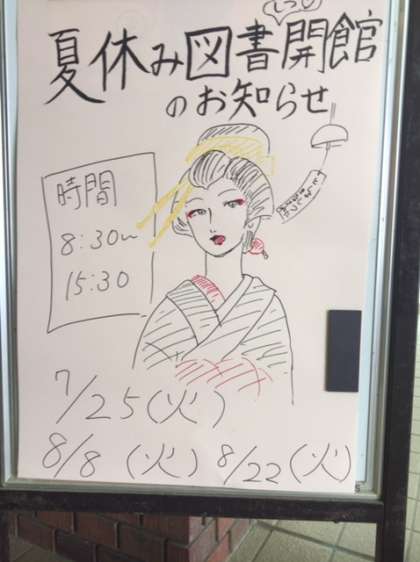 しつ
夏休み図書開館
のお知らせ
時間
8:30〜
15:30
7/25(火)
8/8(火) 8/22(火)